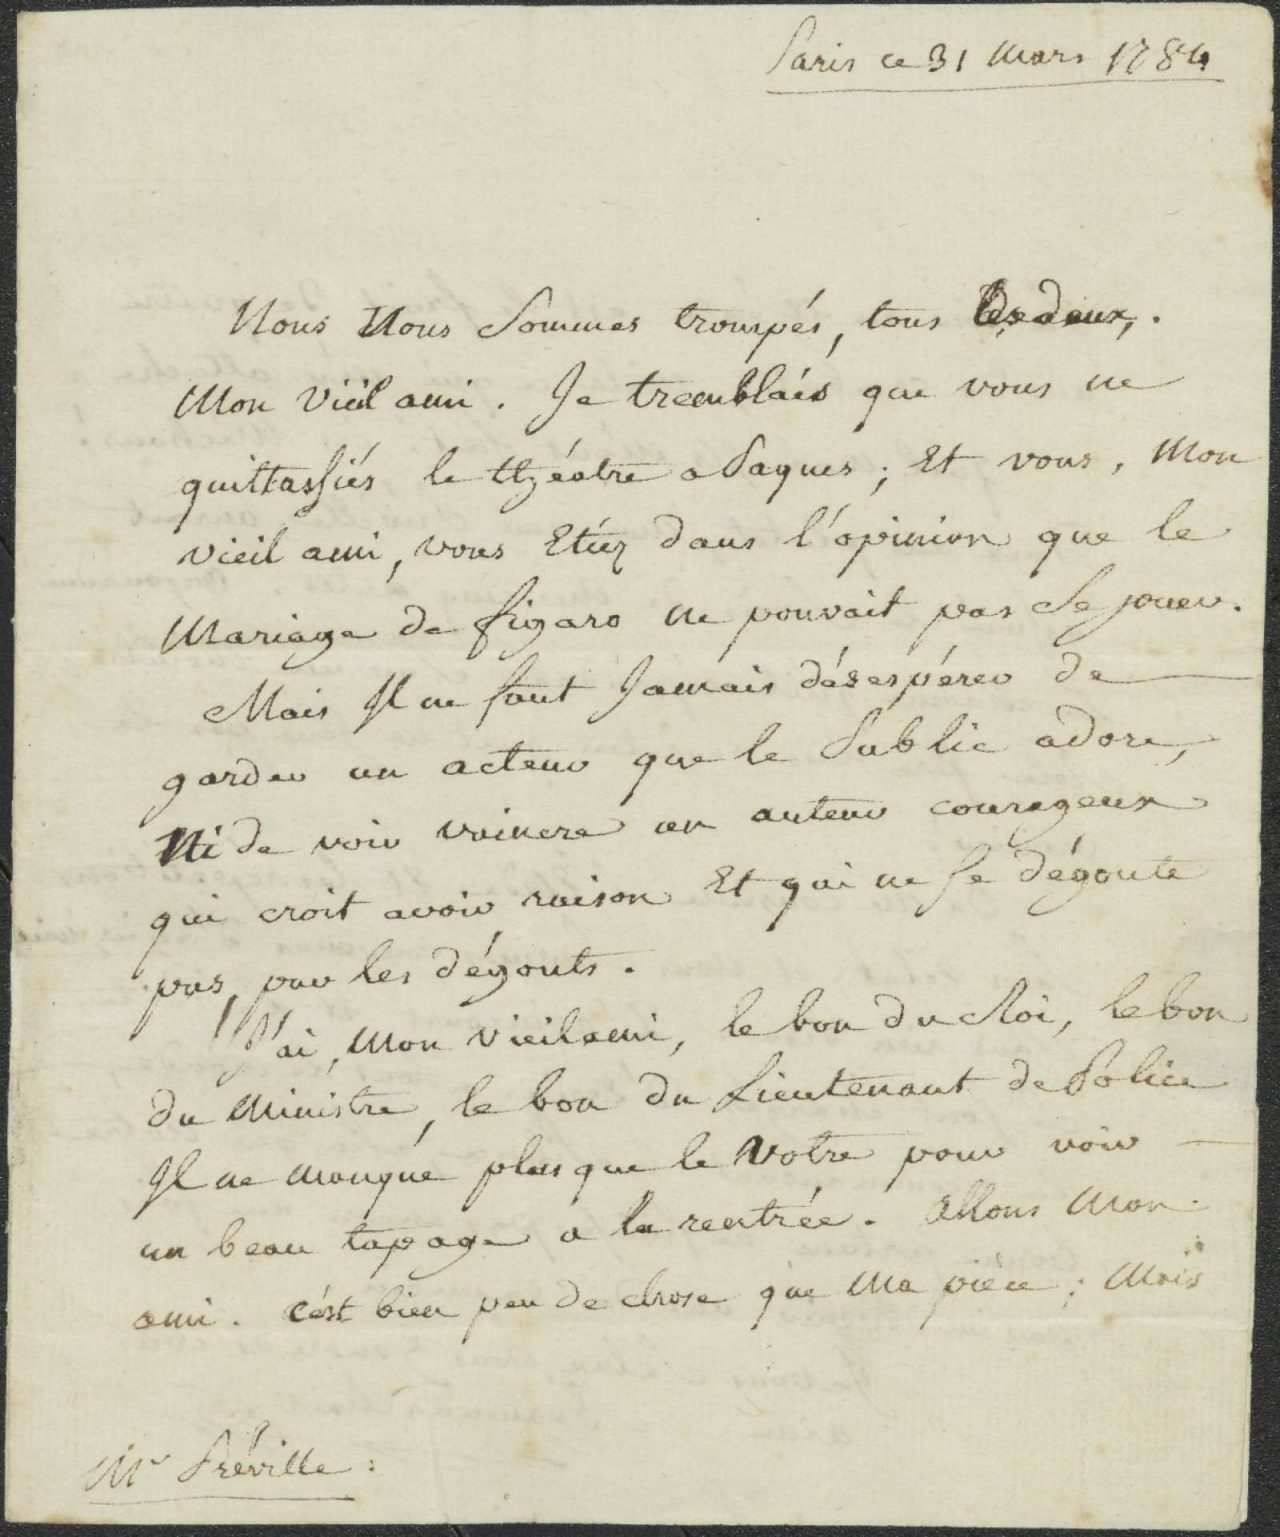 Paris ce 31 Mars 1784
Nous Nous Sommes trompés, tous les deux,
Mon vieil ami. Je tremblais que vous ne
quittassiés le théatre a Paques; Et vous, Mon
vieil ami, vous Etiez dans l'opinion que le
Mariage de figaro ne pouvait pas Se jouer.
Mais Il ne faut Jamais désespérer de
garder un acteur que le Public adore,
Ni de voir vaincre un auteur courageux
qui croit avoir raison Et qui ne se dégoute
pas, par les dégouts.
J'ai, Mon vieil ami, le bon du Roi, le bon
du Ministre, le bon du Lieutenant de Police
Il ne manque plus que le Votre pour voir
un beau tapage a la rentrée. Allons Mon
ami. c'est bien peu de chose que Ma pièce; Mais
Mr Préville: